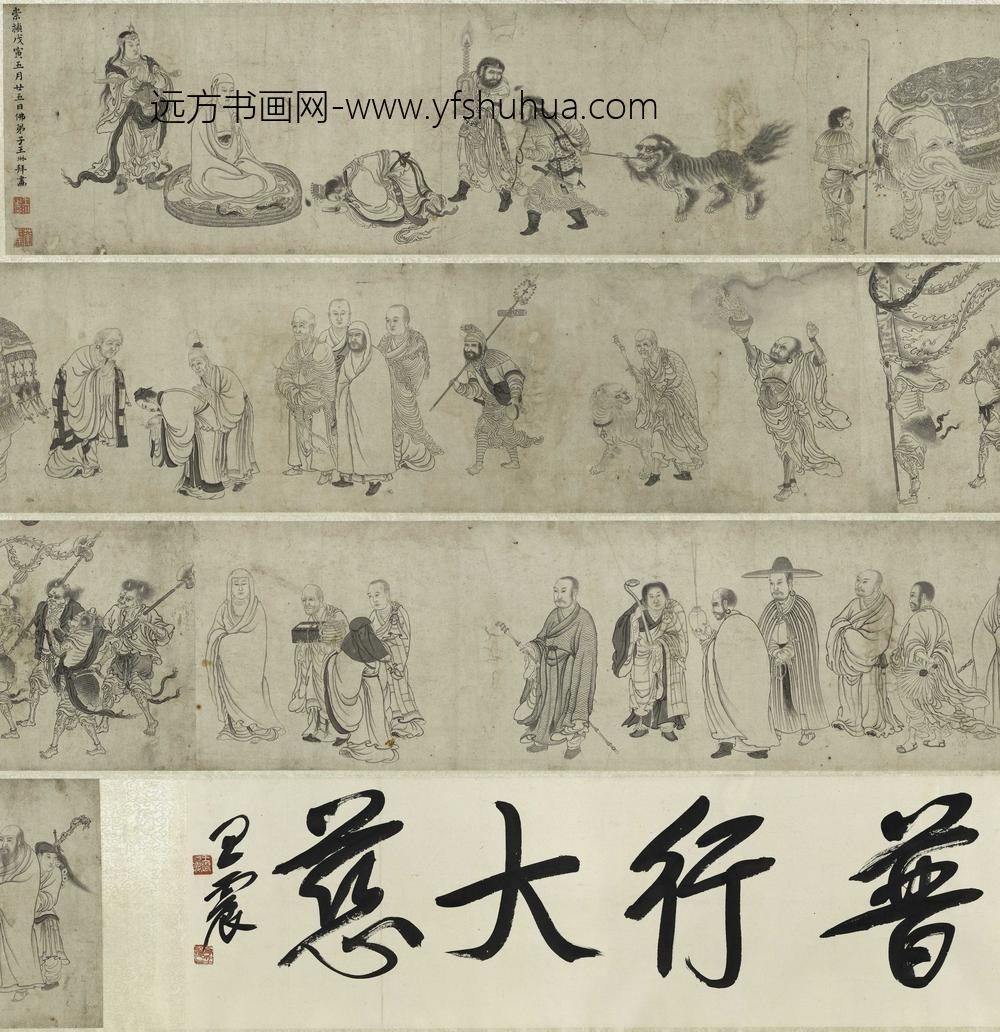 崇禎戊寅五月廿五日佛弟子王琳拜寫
远方书画网-www.yfshuhua.com
普行大慈
王震